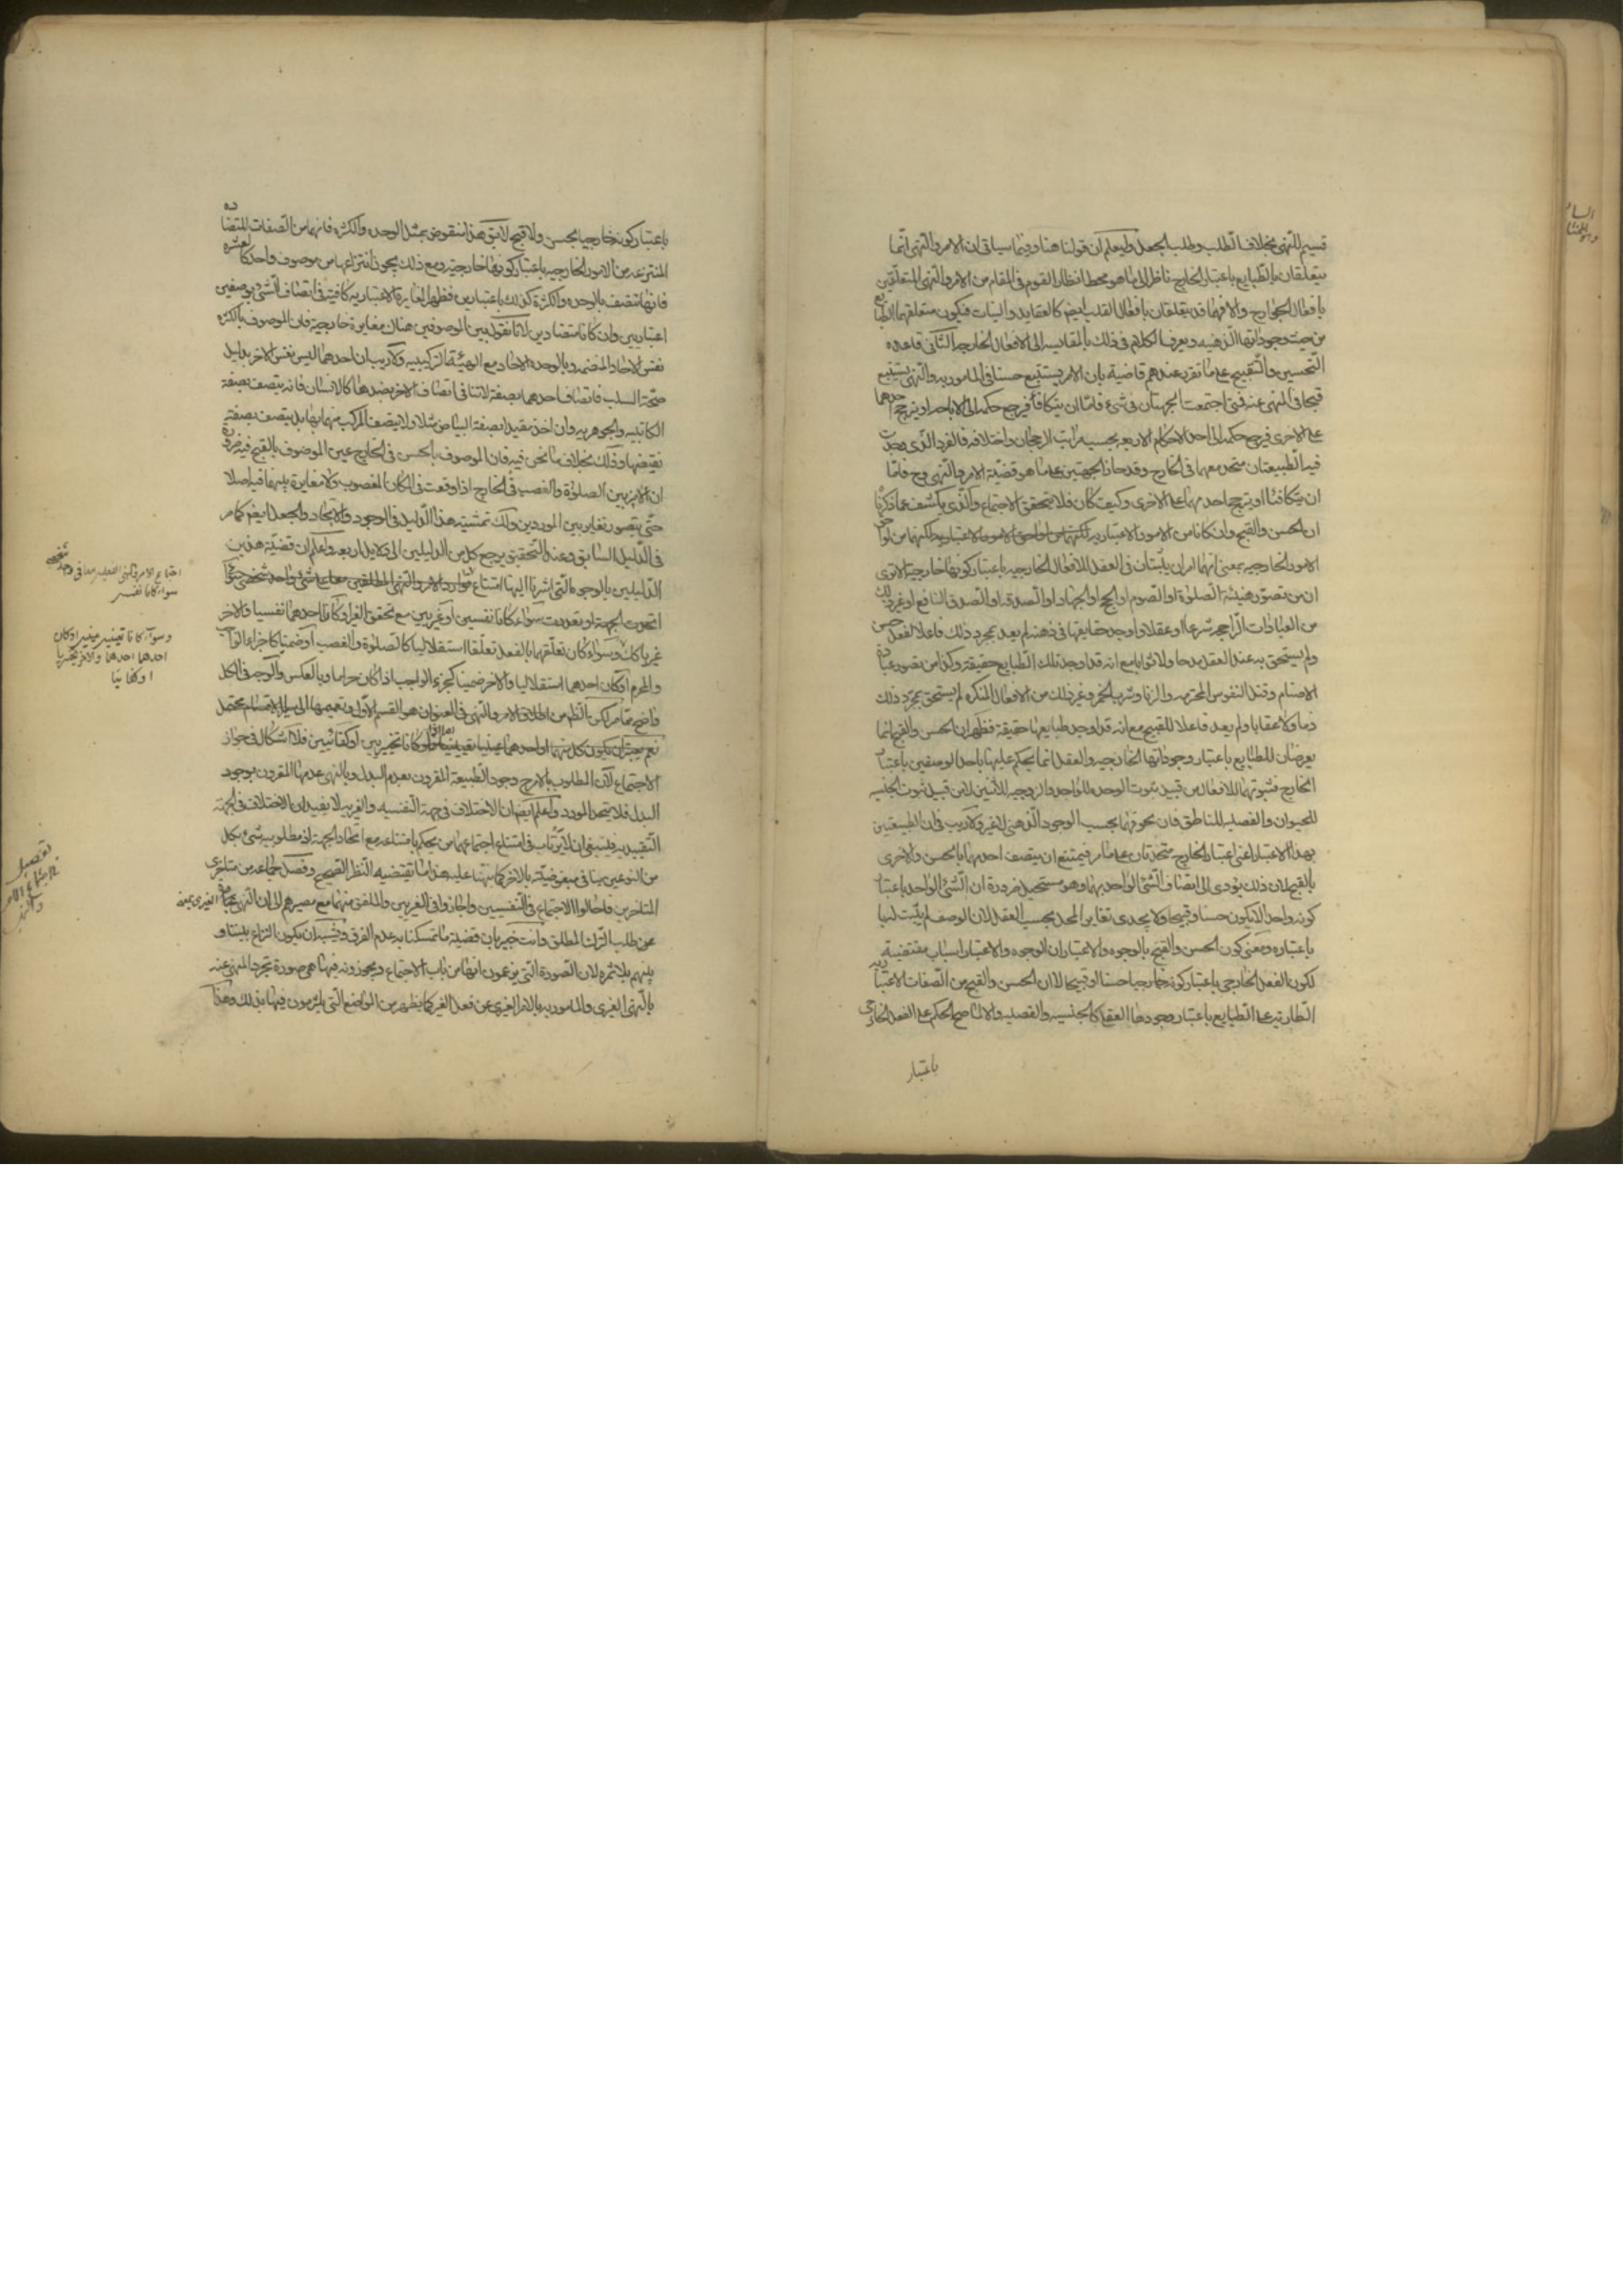 قسيم للنهى بخلاف الطلب وطلب الجعل وليعلم ان قولنا هنا وفيما سياتى ان الامر والنهى انما
يتعلقان بالطبايع باعتبار الخارج ناظر الى ما هو محط انظار القوم فى المقام من الامر والنهى المتعلقين
بافعال الجوارح والا فهما قد يتعلقان بافعال القلب ايضا كالعقايد والنيات فيكون متعلقهما الطبايع
من حيث وجوداتها الذهنية ويعرف الكلام فى ذلك بالمقايسة الى الافعال الخارجية الثانى قاعدة
التحسين والتقبيح على ما تقرر عندهم قاضية بان الامر يستتبع حسنا فى المامور به والنهى يستتبع
قبحا فى المنهى عنه فمتى اجتمعت الجهتان فى شىء فاما ان يتكافأ فيرجع حكمه الى الاباحة او يترجح احدهما
على الاخرى فيرجع حكمه الى احد الاحكام الاربعة بحسب مراتب الرجحان واختلافه فالفرد الذى وجدت
فيه الطبيعتان متحد معهما فى الخارج وقد حاز الجهتين على ما هو قضية الامر والنهى وح فاما
ان يتكافئا او يترجح احدهما على الاخرى وكيف كان فلا يتحقق الاجتماع والذى يكشف عما ذكرنا
ان الحسن والقبح وان كانا من الامور الاعتبارية لكنهما من لواحق
الامور الخارجية بمعنى انهما امران يثبتان فى العقل للافعال الخارجية باعتبار كونها خارجية الا ترى
ان من تصور هيئة الصلوة او الصوم او الحج او الجهاد او الصدقة او الصدق النافع او غير ذلك
من العبادات الراجحة شرعا او عقلا واوجد حقايقها فى ذهنه لم يعد بمجرد ذلك فاعلا لفعل حسن
ولم يستحق به عند العقل مدحا ولا ثوابا مع انه قد اوجد تلك الطبايع حقيقة وكذا من تصور عبادة
الاصنام وقتل النفوس المحترمة والزنا وشرب الخمر وغير ذلك من الافعال المنكرة لم يستحق بمجرد ذلك
ذما ولا عقابا ولم يعد فاعلا للقبيح مع انه قد اوجد طبايعها حقيقة فظهر ان الحسن والقبح انما
يعرضان للطبايع باعتبار وجوداتها الخارجية والعقل انما يحكم عليها باحد الوصفين باعتبار
الخارج فثبوتهما للافعال من قبيل ثبوت الوحدة للواحد والزوجية للاثنين لا من قبيل ثبوت الجنسية
للحيوان والفصلية للناطق فان عروضهما بحسب الوجود الذهنى لا غير ولا ريب فى ان الطبيعتين
بهذا الاعتبار اعنى اعتبار الخارج متحدتان على ما مر فيمتنع ان يتصف احدهما بالحسن والاخرى
بالقبح لان ذلك يؤدى الى اتصاف الشئ الواحد بهما وهو مستحيل ضرورة ان الشئ الواحد باعتبار
كونه واحدا لا يكون حسنا وقبيحا ولا يجدى تغاير المحل بحسب العقل لان الوصف لم يثبت لها
باعتباره ومعنى كون الحسن والقبح بالوجوه والاعتبار ان الوجوه والاعتبار اسباب مقتضية
لكون الفعل الخارجى باعتبار كونه خارجيا حسنا او قبيحا لا ان الحسن والقبح من الصفات الاعتبارية
الطارية على الطبايع باعتبار وجودها العقلى كالجنسية والفصلية والا لما صح الحكم على الفعل الخارجى
باعتبار
باعتبار كونه خارجيا بحسن ولا قبح لا يق هذا منقوض بمثل الوحدة والكثرة فانهما من الصفات المتضادة
المنتزعة من الامور الخارجية باعتبار كونها خارجية ومع ذلك يجوز انتزاعهما من موصوف واحد كالعشرة
فانها تتصف بالوحدة والكثرة كذلك باعتبارين فظهر ان المغايرة الاعتبارية كافية فى اتصاف الشئ بوصفين
اعتباريين وان كانا متضادين لانا نقول بين الموصوفين هناك مغايرة خارجية فان الموصوف بالكثرة
نفس الاحاد المنضمة وبالوحدة الاحاد مع الهيئة التركيبية ولا ريب ان احدهما ليس نفس الاخر بدليل
صحة السلب فاتصاف احدهما بصفة لا تنافى اتصاف الاخر بضدها كالانسان فانه يتصف بصفة
الكاتبية والجوهرية وان اخذ مقيدا بصفة البياض مثلا ولا يتصف المركب منهما بها بل يتصف بصفة
نقيضها وذلك بخلاف ما نحن فيه فان الموصوف بالحسن فى الخارج عين الموصوف بالقبح فيه ضرورة
ان لا ميز بين الصلوة والغصب فى الخارج اذا وقعت فى المكان المغصوب ولا مغايرة بينهما فيه اصلا
حتى يتصور تغاير بين الموردين ولك تمشية هذا الدليل فى الوجود والايجاد والجعل ايضا كما مر
فى الدليل السابق وعند التحقيق يرجع كل من الدليلين الى دلايل اربعة واعلم ان قضية هذين
الدليلين بالوجوه التى اشرنا اليها امتناع توارد الامر والنهى المطلقين معا على شئ واحد شخصى سواء
اتحدت الجهة او تعددت سواء كانا نفسيين او غيريين مع تحقق الغير او كان احدهما نفسيا والاخر
غيريا كك وسواء كان تعلقهما بالفعل تعلقا استقلاليا كالصلوة والغصب او ضمنيا كاجزاء الواجب
والمحرم او كان احدهما استقلاليا والاخر ضمنيا كجزء الواجب اذا كان حراما وبالعكس والوجه فى الكل
واضح مما مر لكن الظ من اطلاق الامر والنهى فى العنوان هو القسم الاول وتعميمها الى ساير الاقسام محتمل
نعم يعتبر ان يكون كل منهما او احدهما عينيا تعيينيا واما اذا كانا تخييريين او كفائيين فلا اشكال فى جواز
الاجتماع لان المطلوب بالامر ح وجود الطبيعة المقرون بعدم البدل وبالنهى عدمها المقرون بوجود
البدل فلا يتحد المورد واعلم ايضا ان الاختلاف فى جهة النفسية والغيرية لا يفيد ان الاختلاف فى الجهة
التقييدية فينبغى ان لا يرتاب فى امتناع اجتماعهما من يحكم بامتناعه مع اتحاد الجهة اذ مطلوبية شئ بكل
من النوعين ينافى مبغوضيته بالاخر كما نبهنا عليه هذا ما يقتضيه النظر الصحيح وفصل جماعة من متاخرى
المتاخرين فاحالوا الاجتماع فى النفسيين واجازوا فى الغيريين والملفق منهما مع مصيرهم الى ان النهى الغيرى بمعنى
طلب الترك المطلق وانت خبير بان قضية ما تمسكنا به عدم الفرق ويشبه ان يكون النزاع بيننا و
بينهم بلا ثمرة لان الصورة التى يزعمون انها من باب الاجتماع ويجوزونه فيها هى صورة تجرد المنهى عنه
بالنهى الغيرى والمامور به بالامر الغيرى عن فعل الغير كما يظهر من المواضع التى يلتزمون فيها بذلك وهذا
وسواء كانا تعيينيين او كان
احدهما والاخر تخييريا
او كفائيا
تفصيل